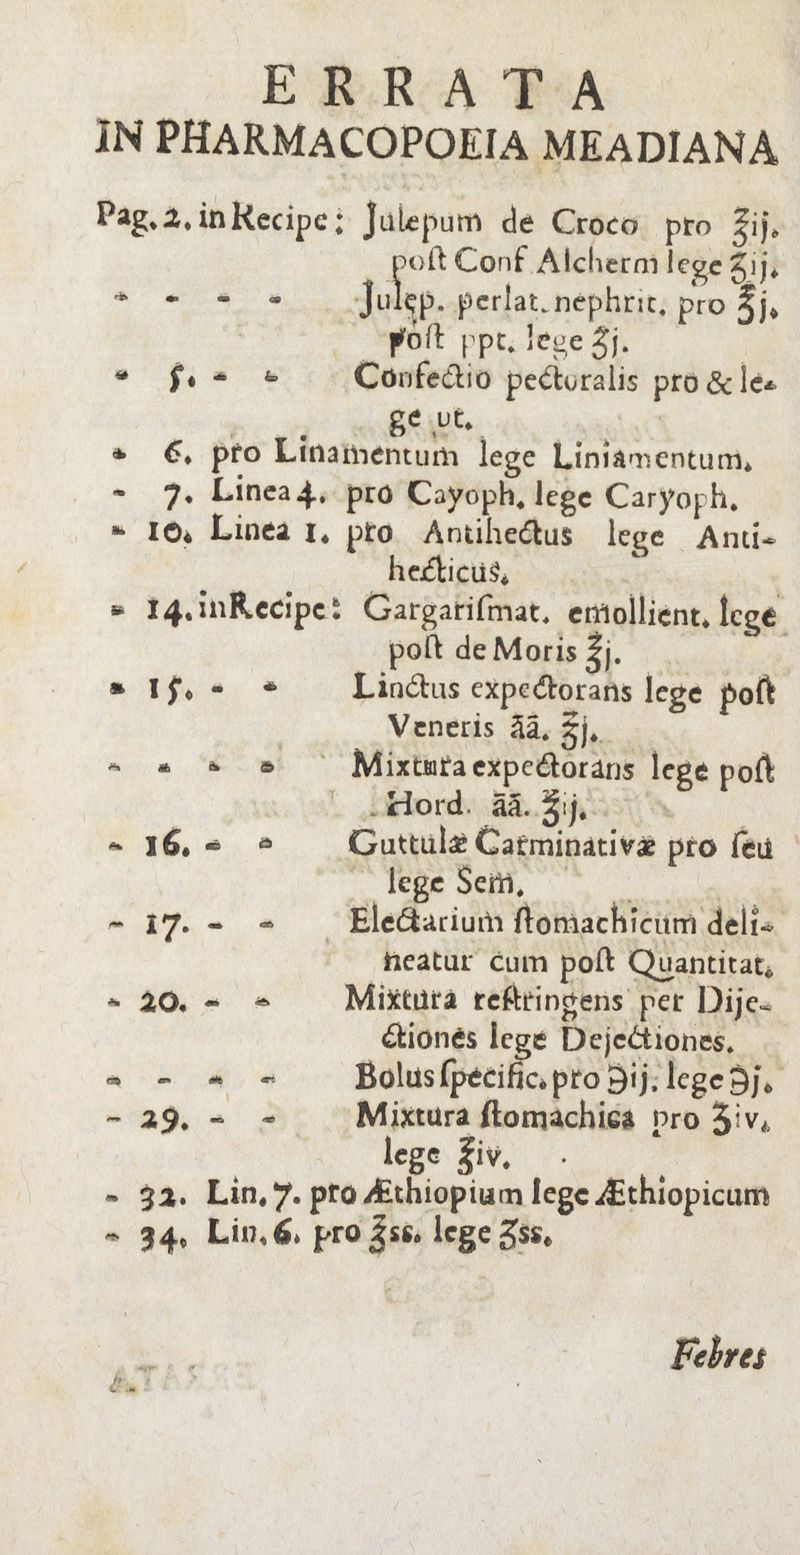 ERRATA
IN PHARMACOPOEIA MEADIANA
Pag. 2. in Recipe: Julepum de Croco pro ℥ij.
poſt Conf Alcherm lege ʒij.
- - - - Julęp. perlat. nephrit. pro ℥j.
poſt ppt. lege ʒj.
- 5. - - Confectio pectoralis pro & le-
ge ut.
- 6. pro Linamentum lege Liniamentum.
- 7. Linea 4. pro Cayoph. lege Caryoph.
- 10. Linea 1. pro Antihectus lege Anti-
hecticus.
- 14. in Recipe: Gargariſmat. emollient. lege
poſt de Moris ℥j.
- 15. - - Linctus expectorans lege poſt
Veneris āā. ℥j.
- - - - Mixtura expectorans lege poſt
Hord. āā. ℥ij.
- 16. - - Guttulæ Carminativæ pro ſeu
lege Sem.
- 17. - - Electarium ſtomachicum deli-
neatur cum poſt Quantitat.
- 20. - - Mixtura reſtringens per Dije-
ctiones lege Dejectiones.
- - - - Bolus ſpecific. pro ℈ij. lege ℈j.
- 29. - - Mixtura ſtomachica pro ʒiv.
lege ℥iv.
- 32. Lin. 7. pro Æthiopium lege Æthiopicum
- 34. Lin. 6. pro ℥ss. lege ʒss.
Febres